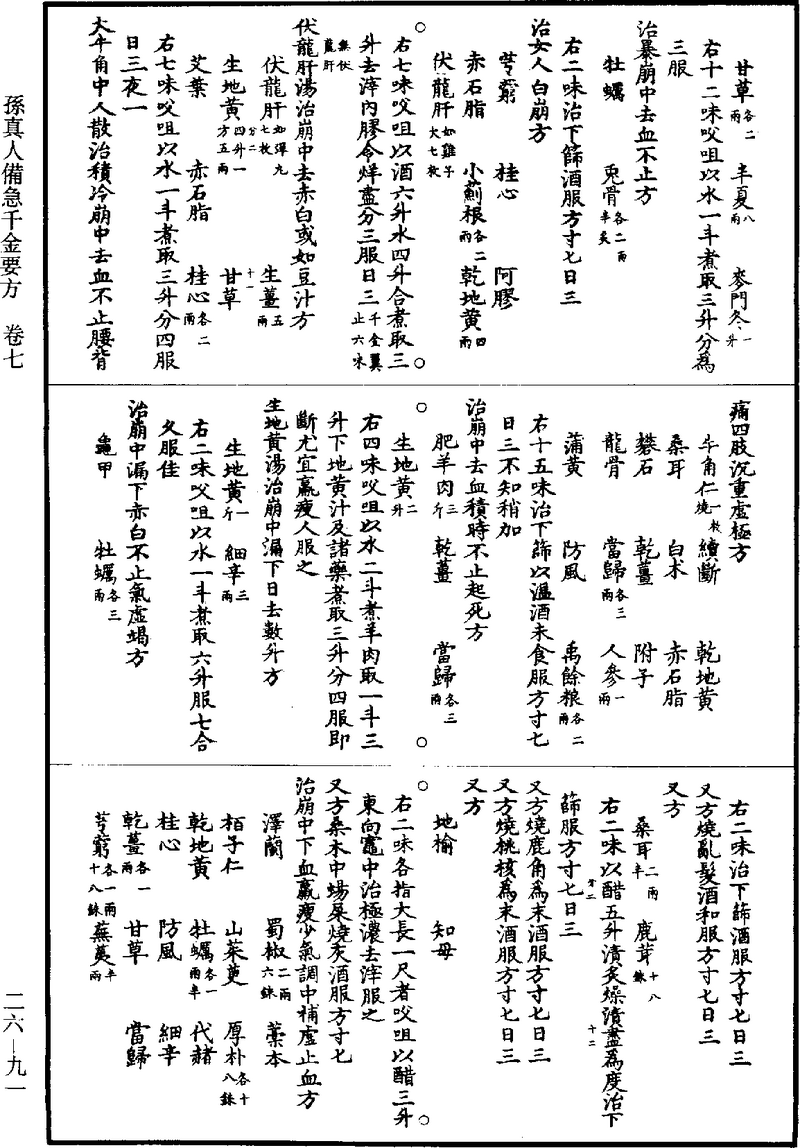 甘草各二兩 半夏八兩 麥門冬一升
右十二味㕮咀以水一斗煮取三升分為
三服
治暴崩中去血不止方
牡蠣 兔骨各二兩半炙
右二味治下篩酒服方寸匕日三
治女人白崩方
芎藭 桂心 阿膠
赤石脂 小薊根各二兩 乾地黃四兩
伏龍肝如雞子大七枚
右七味㕮咀以酒六升水四升合煮取三
升去滓內膠令烊盡分三服日三千金翼止六味
無伏龍肝
伏龍肝湯治崩中去赤白或如豆汁方
伏龍肝如彈丸七枚 生薑五兩
生地黃四升一方五兩 甘草
艾葉 赤石脂 桂心各二兩
右七味㕮咀以水一斗煮取三升分四服
日三夜一
大牛角中人散治積冷崩中去血不止腰背
痛四肢沉重虛極方
牛角仁一枚燒 續斷 乾地黃
桑耳 白朮 赤石脂
礬石 乾薑 附子
龍骨 當歸各三兩 人參一兩
蒲黃 防風 禹餘粮各二兩
右十五味治下篩以溫酒未食服方寸匕
日三不知稍加
治崩中去血積時不止起死方
肥羊肉三斤 乾薑 當歸各三兩
生地黃二升
右四味㕮咀以水二斗煮羊肉取一斗三
升下地黃汁及諸藥煮取三升分四服即
斷尤宜羸瘦人服之
生地黃湯治崩中漏下日去數升方
生地黃一斤 細辛三兩
右二味㕮咀以水一斗煮取六升服七合
久服佳
治崩中漏下赤白不止氣虛竭方
龜甲 牡蠣各三兩
右二味治下篩酒服方寸匕日三
又方燒亂髮酒和服方寸匕日三
又方
桑耳二兩半 鹿茸十八銖
右二味以醋五升漬炙燥漬盡為度治下
篩服方寸匕日三
又方燒鹿角為末酒服方寸匕日三
又方燒桃核為末酒服方寸匕日三
又方
地榆 知母
右二味各指大長一尺者㕮咀以醋三升
東向竈中治極濃去滓服之
又方桑木中蝎屎燒灰酒服方寸匕
治崩中下血羸瘦少氣調中補虛止血方
澤蘭 蜀椒二兩六銖 藁本
栢子仁 山茱萸 厚朴各十八銖
乾地黃 牡蠣各一兩半 代赭
桂心 防風 細辛
乾薑各一兩 甘草 當歸
芎藭各一兩十八銖 蕪荑半兩
孫真人備急千金要方 卷七
二六—九一